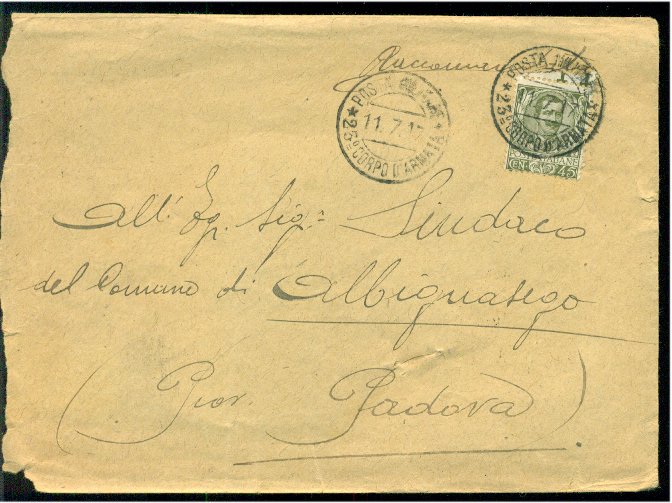 Raccomandata
POSTA MILITARE
11.7.17
25º CORPO D'ARMATA
POSTA MILITARE
25º CORPO D'ARMATA
POSTE ITALIANE
CENT. 45
All'. Eg. Sig.ᵒ Sindaco
del Comune di Albignasego
(Prov. Padova)